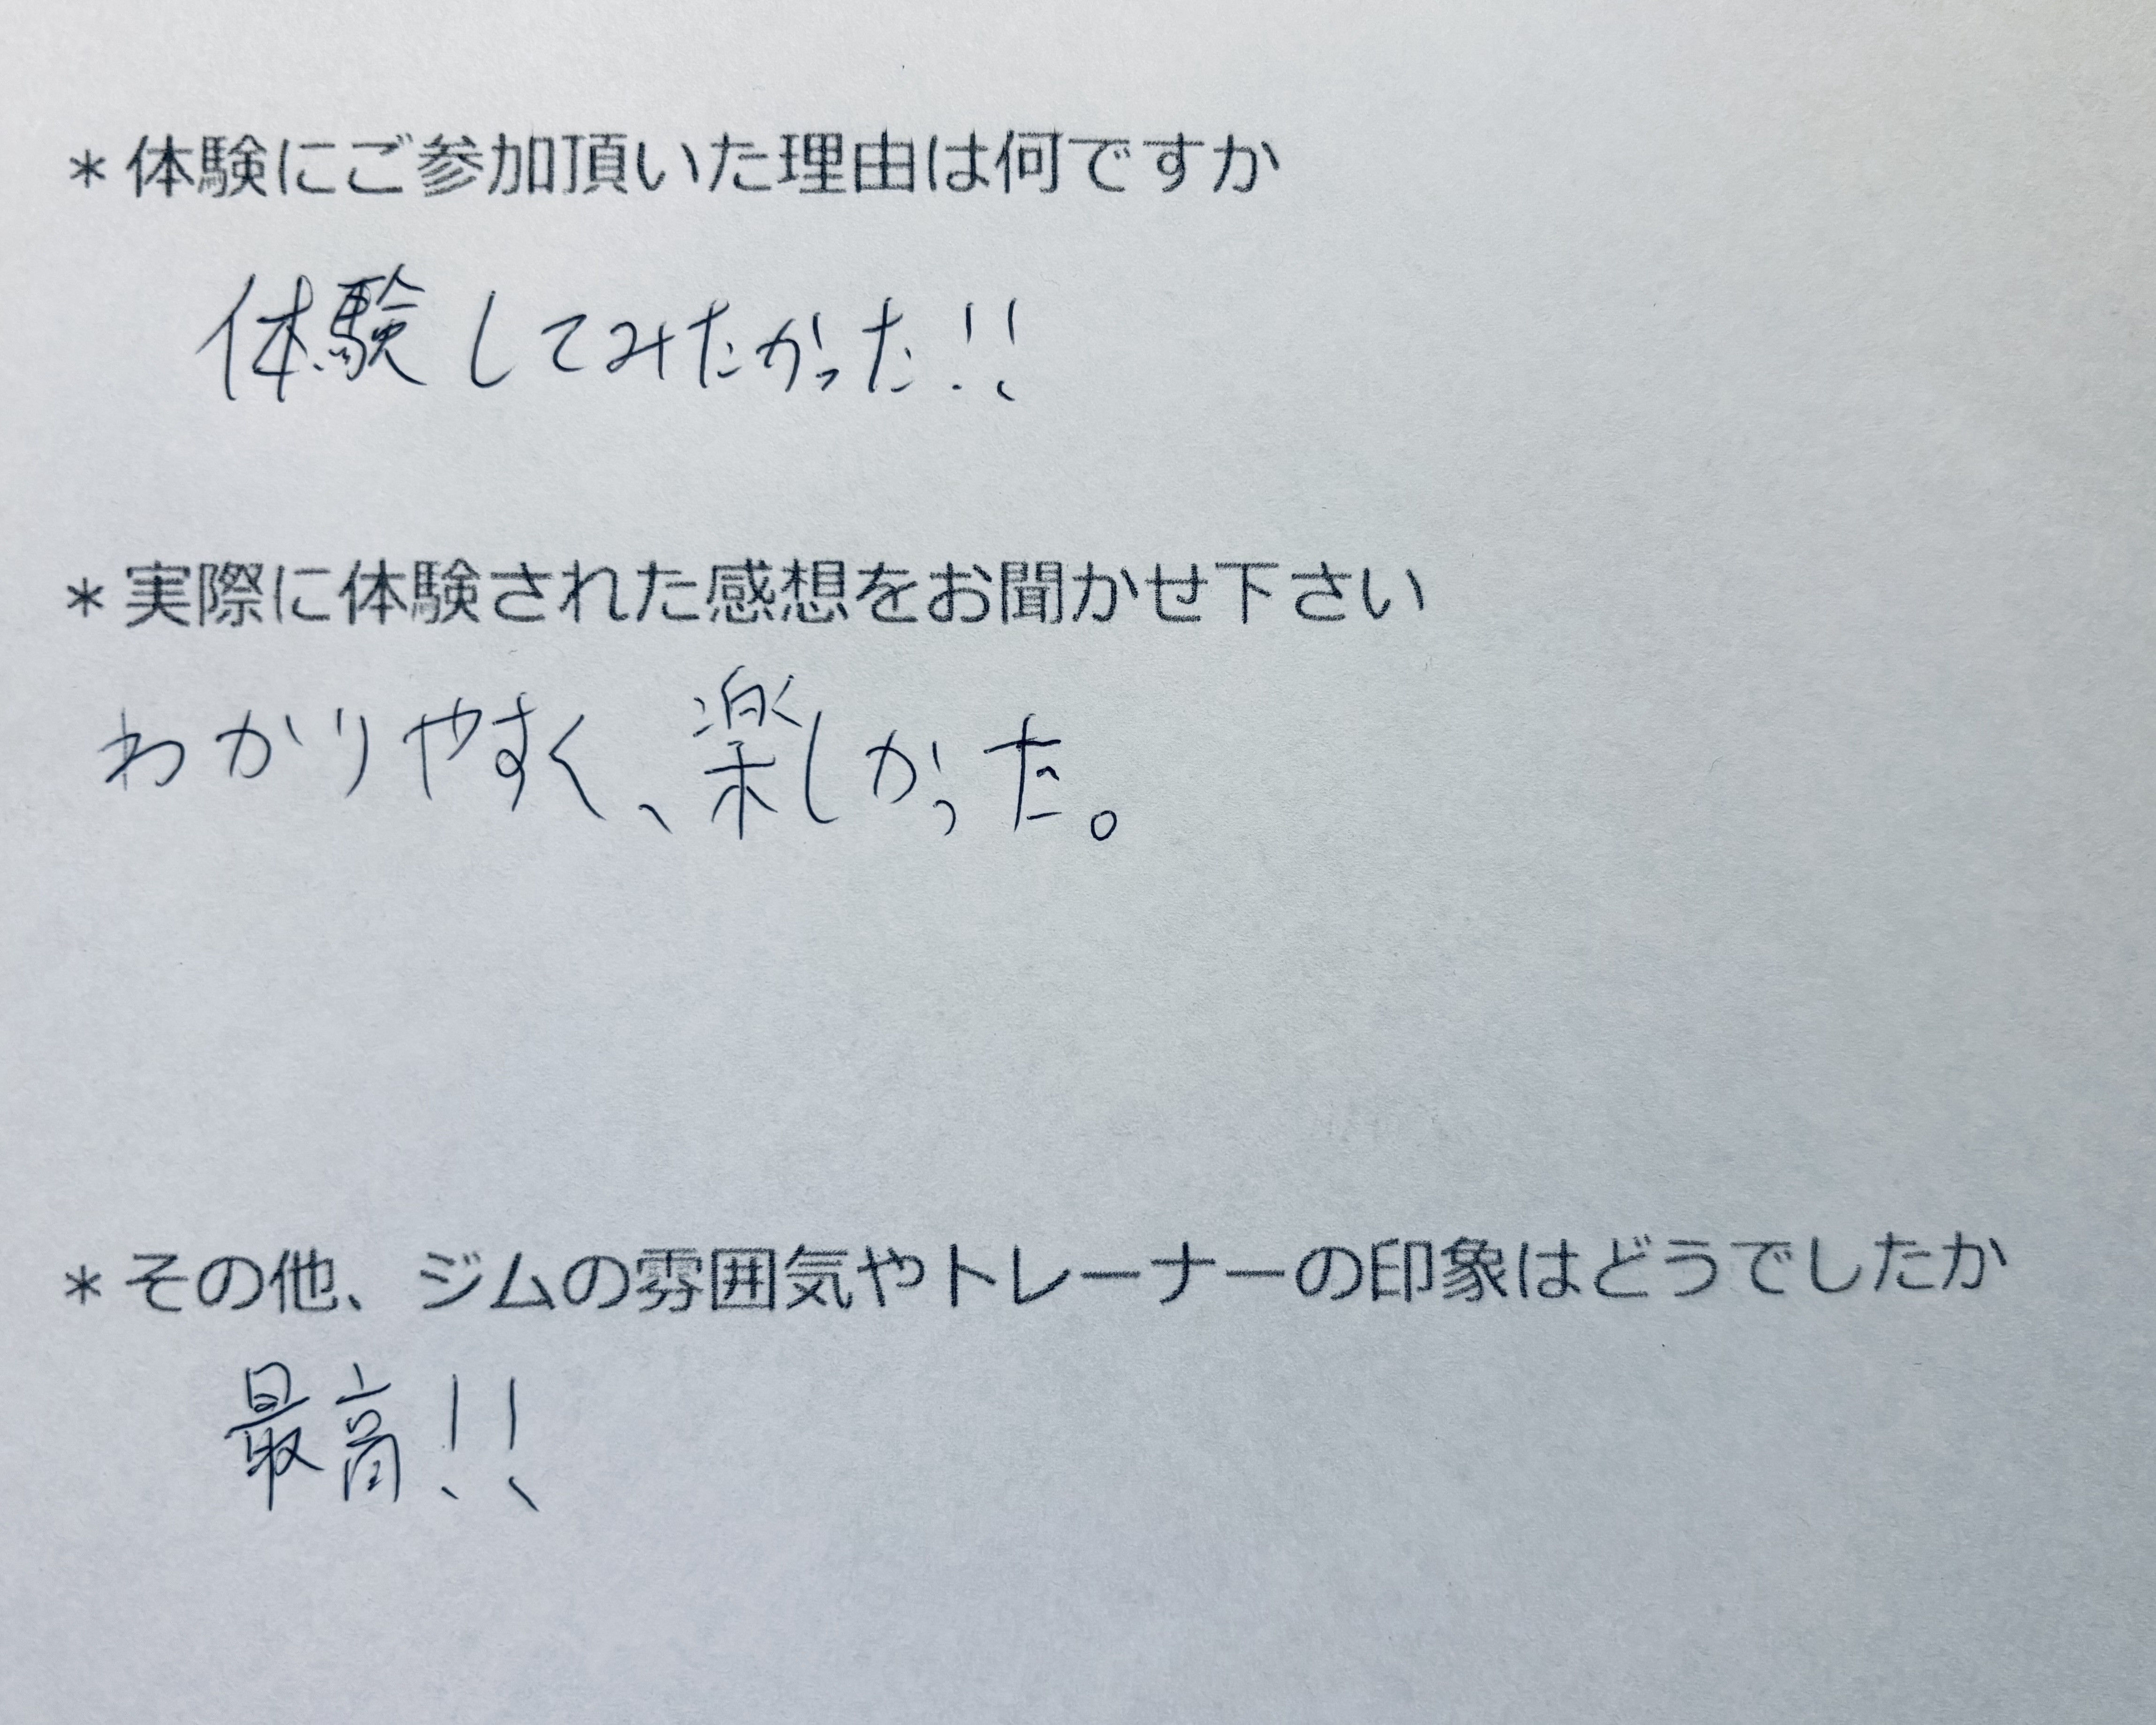 *体験にご参加頂いた理由は何ですか
体験してみたかった!!
*実際に体験された感想をお聞かせ下さい
わかりやすく、楽しかった。
*その他、ジムの雰囲気やトレーナーの印象はどうでしたか
最高!!